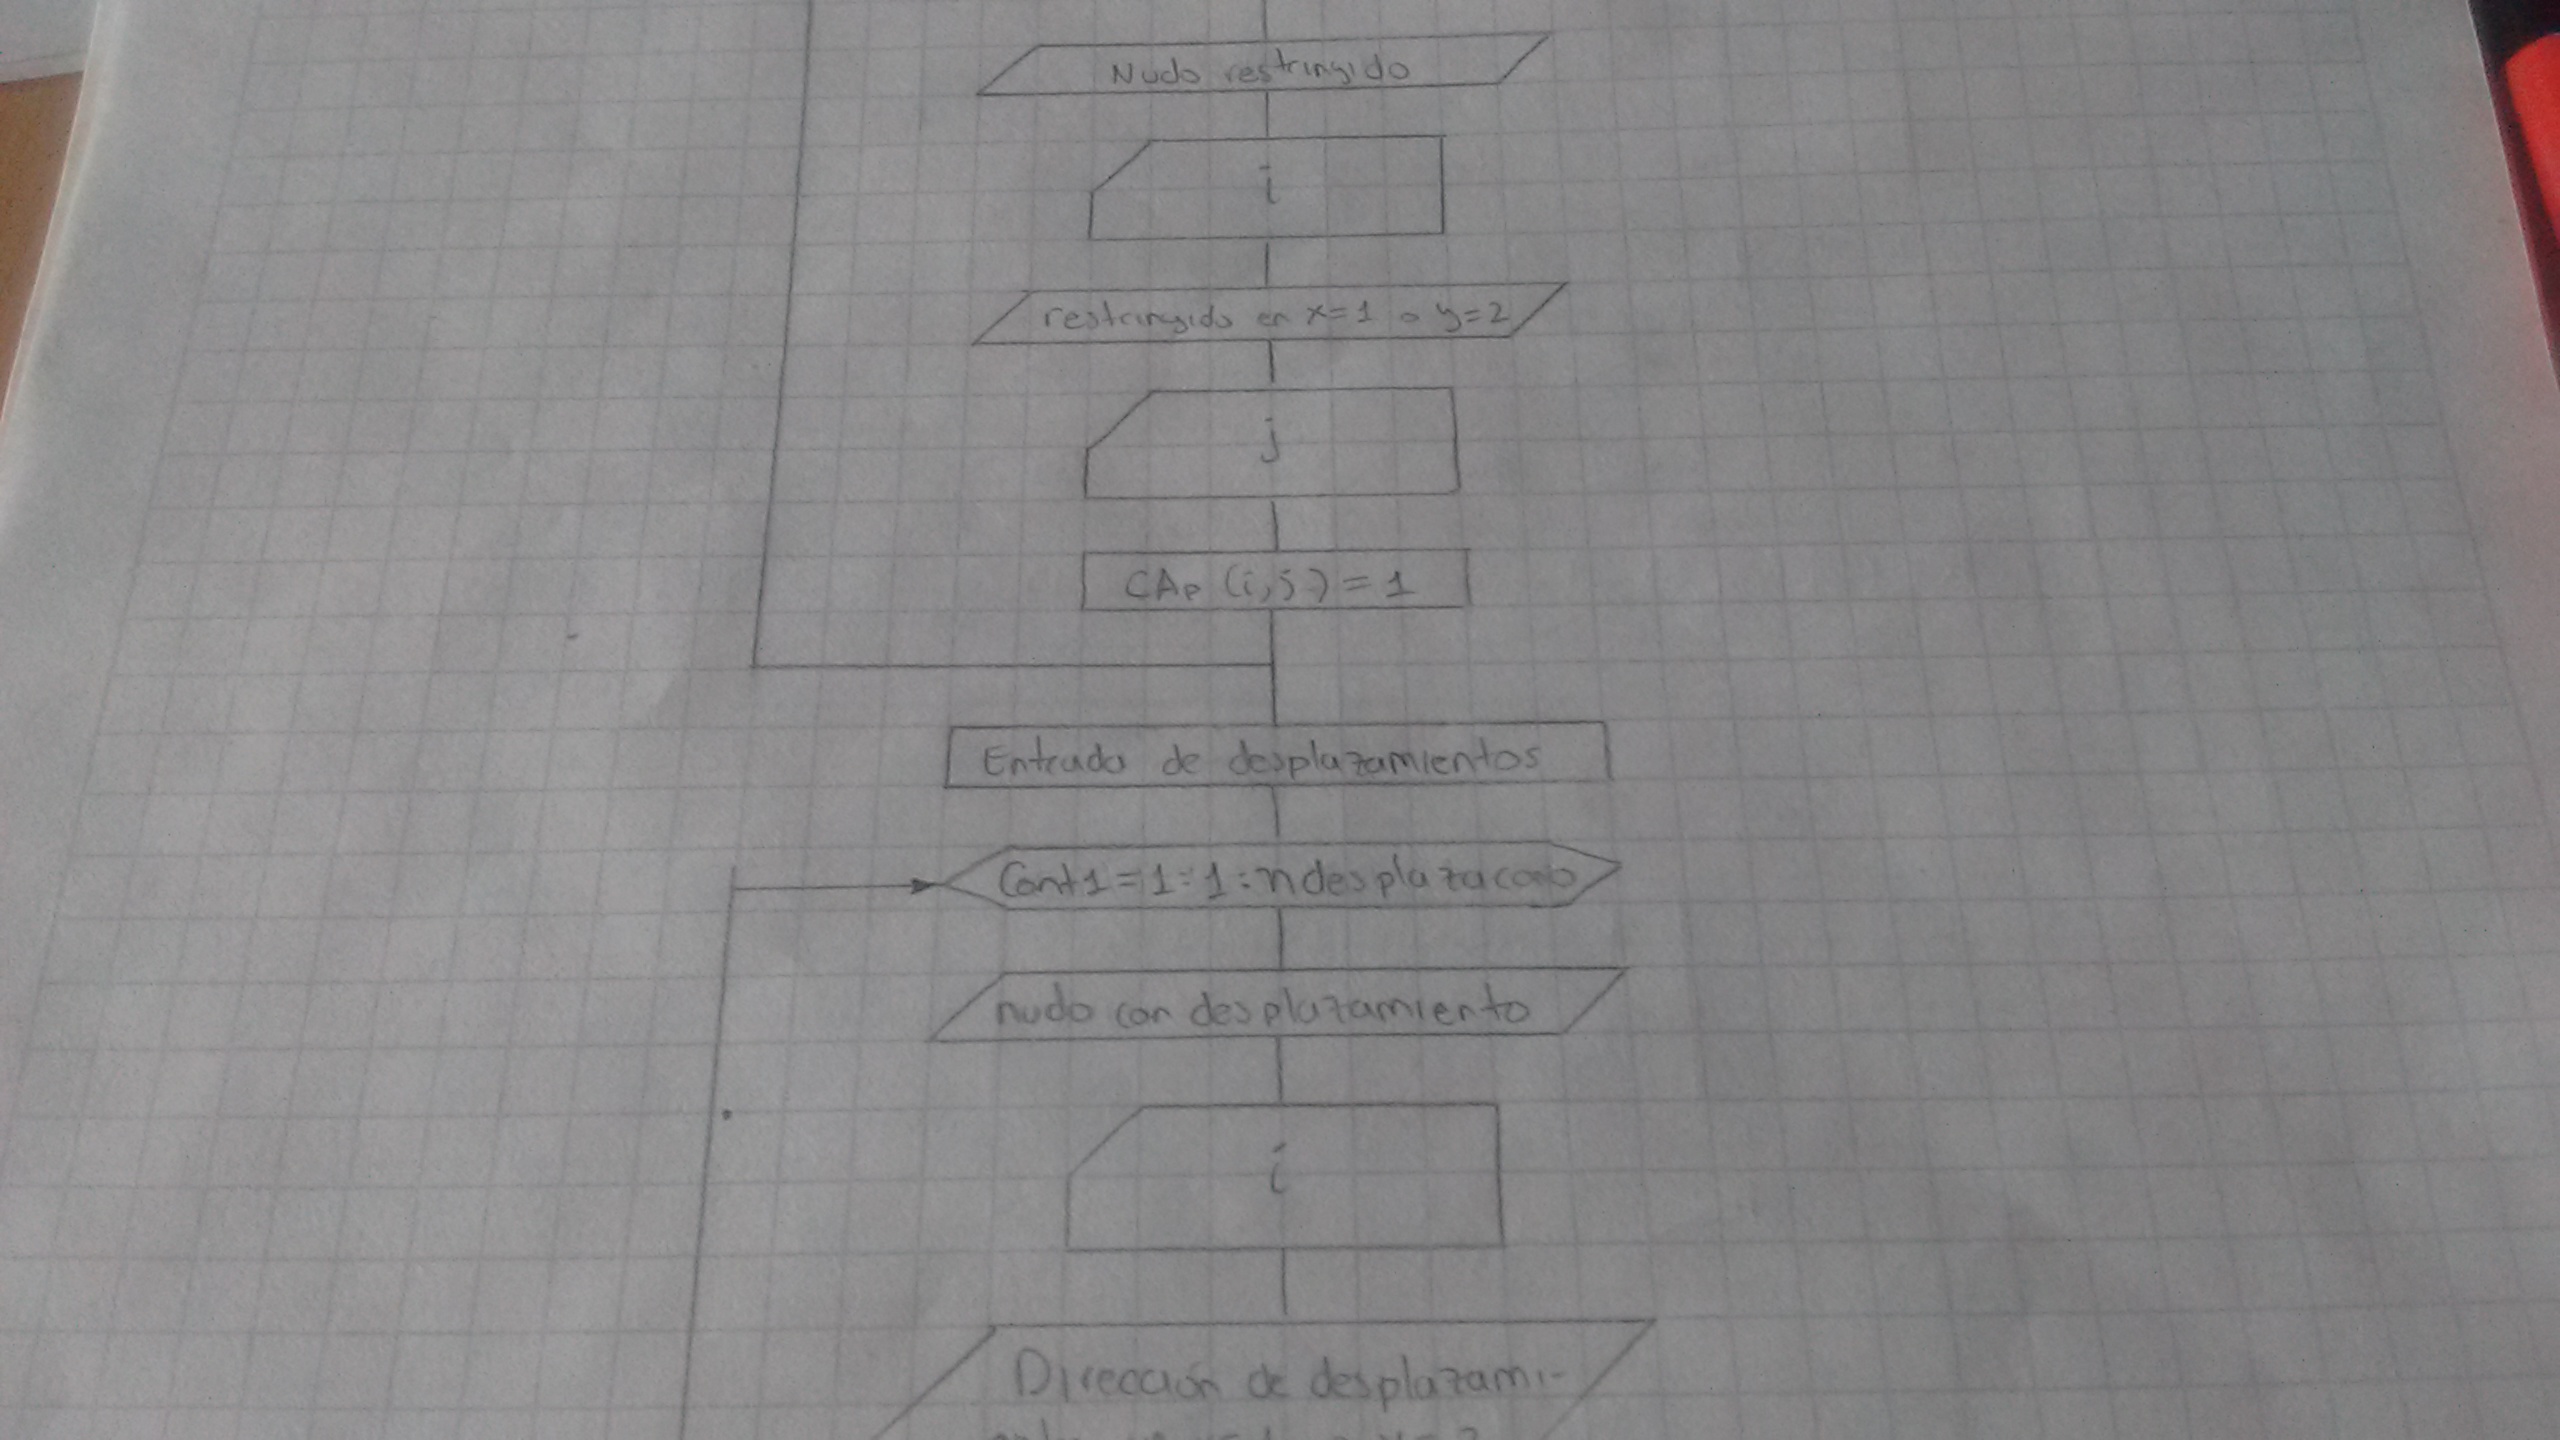 Nudo restringido
i
restringido en x=1 o y=2
j
CAp (i,j) = 1
Entrada de desplazamientos
Cont1 = 1:1:n
nudo con desplazamiento
i
Dirección de desplazami-